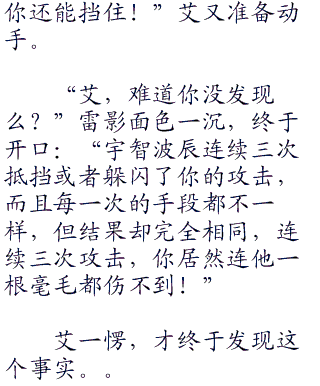 你还能挡住！”艾又准备动
手。
“艾，难道你没发现
么？”雷影面色一沉，终于
开口：“宇智波辰连续三次
抵挡或者躲闪了你的攻击，
而且每一次的手段都不一
样，但结果却完全相同，连
续三次攻击，你居然连他一
根毫毛都伤不到！”
艾一愣，才终于发现这
个事实。。